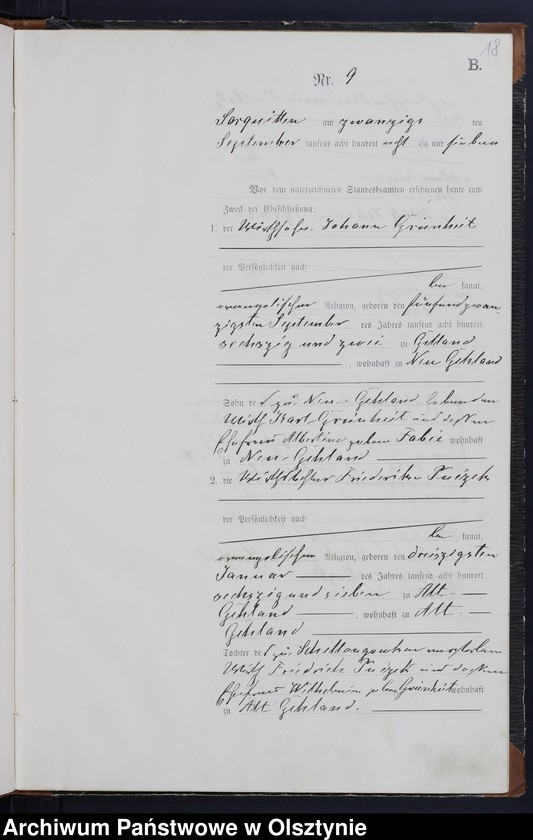 18
B.
Nr. 9
Sorquitten am zwanzigs ten
September tausend acht hundert acht zig und sieben
Vor dem unterzeichneten Standesbeamten erschienen heute zum
Zweck der Eheschließung:
1. der Wirthssohn Johann Grünheit
der Persönlichkeit nach
be kannt,
evangelischer Religion, geboren den fünfundzwan-
zigsten September des Jahres tausend acht hundert
sechszig und zwei zu Gehland
, wohnhaft zu Neu Gehland
Sohn des zu Neu-Gehland lebenden
Wirth Karl Grünheit und dessen
Ehefrau Albertine geborne Fabie wohnhaft
zu Neu-Gehland
2. die Wirthstochter Friederike
der Persönlichkeit nach
be kannt,
evangelischer Religion, geboren den dreiszigsten
Januar des Jahres tausend acht hundert
sechszig und sieben zu Alt-
Gehland , wohnhaft zu Alt-
Gehland
Tochter des zu verstorbenen
Wirth Friedrich und dessen
Ehefrau Wilhelmine geborne Grünheit wohnhaft
zu Alt Gehland.
Archiwum Państwowe w Olsztynie